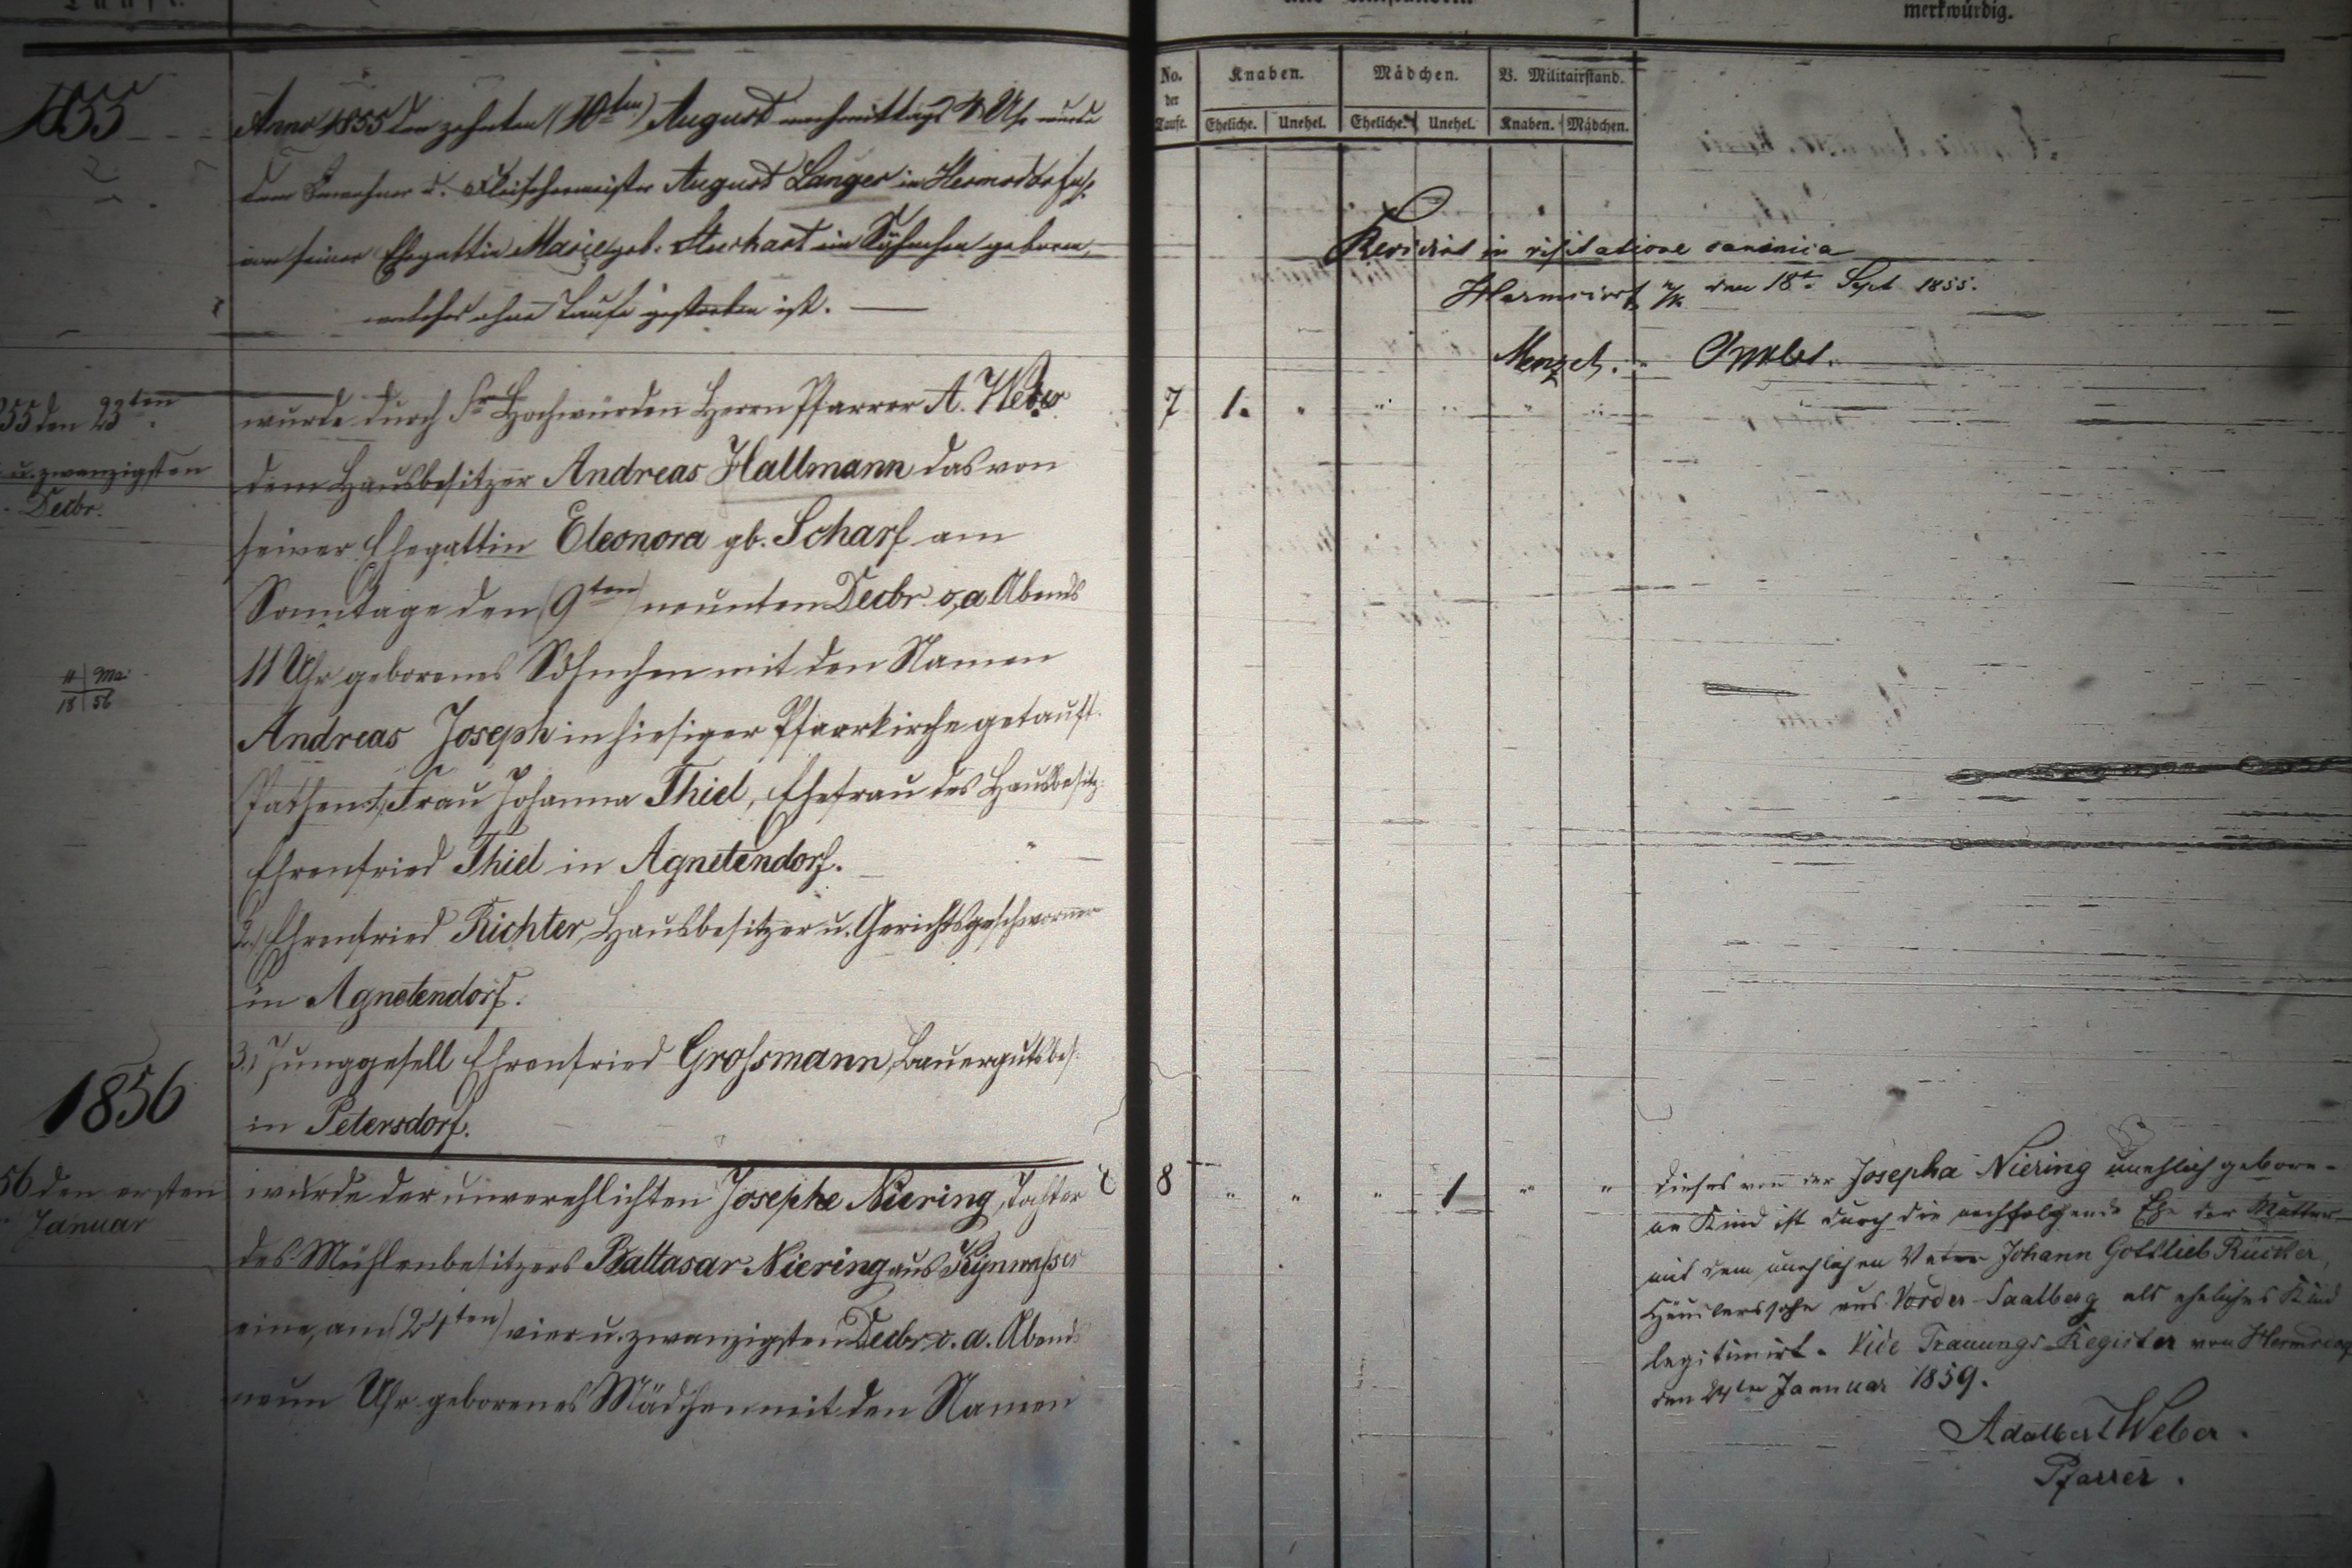 merkwürdig.
1855
Anno 1855 den zehnten (10ten) August nachmittags 4 Uhr wurde
dem Inwohner u. Fleischermeister August Langer in Hermsdorf
von seiner Ehegattin Marie geb. ein Söhnchen geboren,
welches ohne Taufe gestorben ist. —
55 den 23ten
u. zwanzigsten
Decbr.
wurde durch Sr Hochwürden Herrn Pfarrer A. Weber
dem Hausbesitzer Andreas Hallmann das von
seiner Ehegattin Eleonora gb. Scharf am
Sonntage den (9ten) neunten Decbr. o, a Abends
11 Uhr geborenes Söhnchen mit den Namen
Andreas Joseph in hiesiger Pfarrkirche getauft.
Pathen 1, Frau Johanna Thiel, Ehefrau des Hausbesitz:
Ehrenfried Thiel in Agnetendorf.
2.) Ehrenfried Richter, Hausbesitzer u. Gerichtsgeschworner
in Agnetendorf.
3.) Junggesell Ehrenfried Großmann, Bauergutsbes:
in Petersdorf.
1856
56 den ersten
Januar
wurde der unverehlichten Josepha Niering, Tochter
des Mühlenbesitzers Baltasar Niering aus
eine, am (24ten) vier u. zwanzigsten Decbr. o. a. Abends
neun Uhr geborenes Mädchen mit den Namen
No. der Taufe.
Knaben. Mädchen. V. Militairstand.
Eheliche. Unehel. Eheliche. Unehel. Knaben. Mädchen.
Revidirt in visitatione canonica
Hermsdorf u/K den 18t. Sept 1855.
Menzel.
7 1. " " " " "
8 " " " 1 " "
Dieses von der Josepha Niering unehlich gebore-
ne Kind ist durch die nachfolgende Ehe der Mutter
mit dem unehlichen Vater Johann Gottlieb Rücker,
Häuslerssohn aus Vorder-Saalberg als eheliches Kind
legitimirt. Vide Trauungs-Register von Hermsdorf
den 24ten Januar 1859.
Adalbert Weber.
Pfarrer.